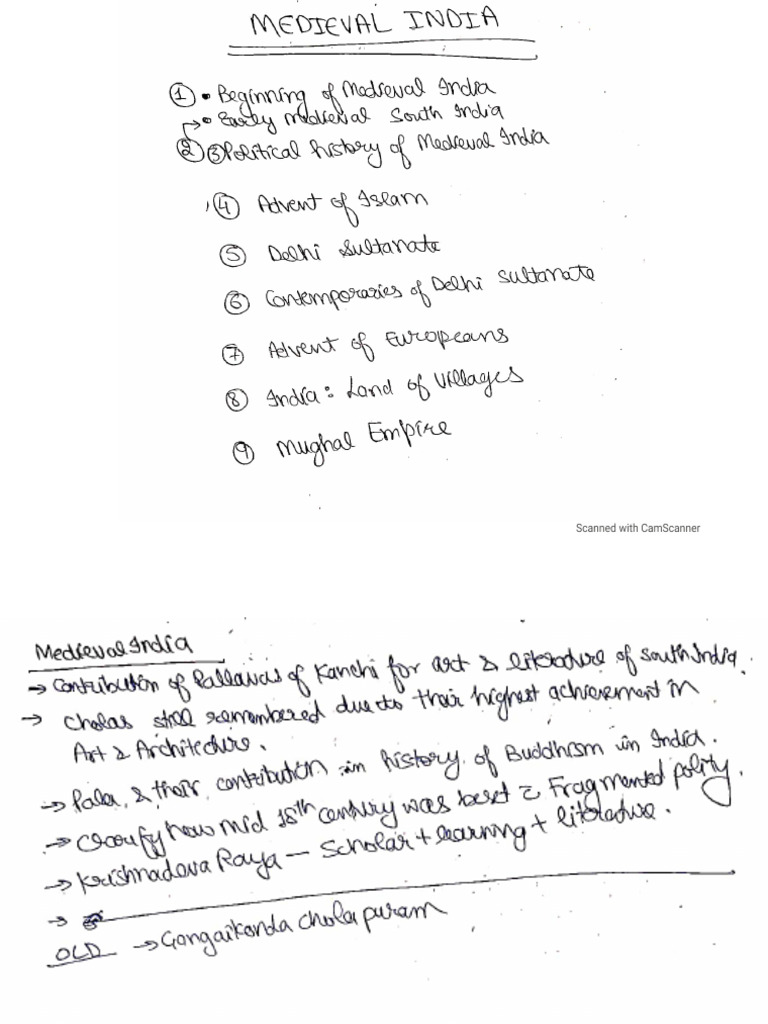 MEDIEVAL INDIA
① • Beginning of Medieval India
→ • Early medieval South India
② ③ Political history of Medieval India
④ Advent of Islam
⑤ Delhi Sultanate
⑥ Contemporaries of Delhi Sultanate
⑦ Advent of Europeans
⑧ India: Land of Villages
⑨ Mughal Empire
Scanned with CamScanner
Medieval India
→ Contribution of Pallavas of Kanchi for art & literature of South India.
→ Cholas still remembered due to their highest achievement in
Art & Architecture.
→ Palas & their contribution in history of Buddhism in India.
→ Clarify how mid 18th century was beset Fragmented polity.
→ Krishnadeva Raya — Scholar + learning + literature.
→
OLD → Gangaikonda cholapuram